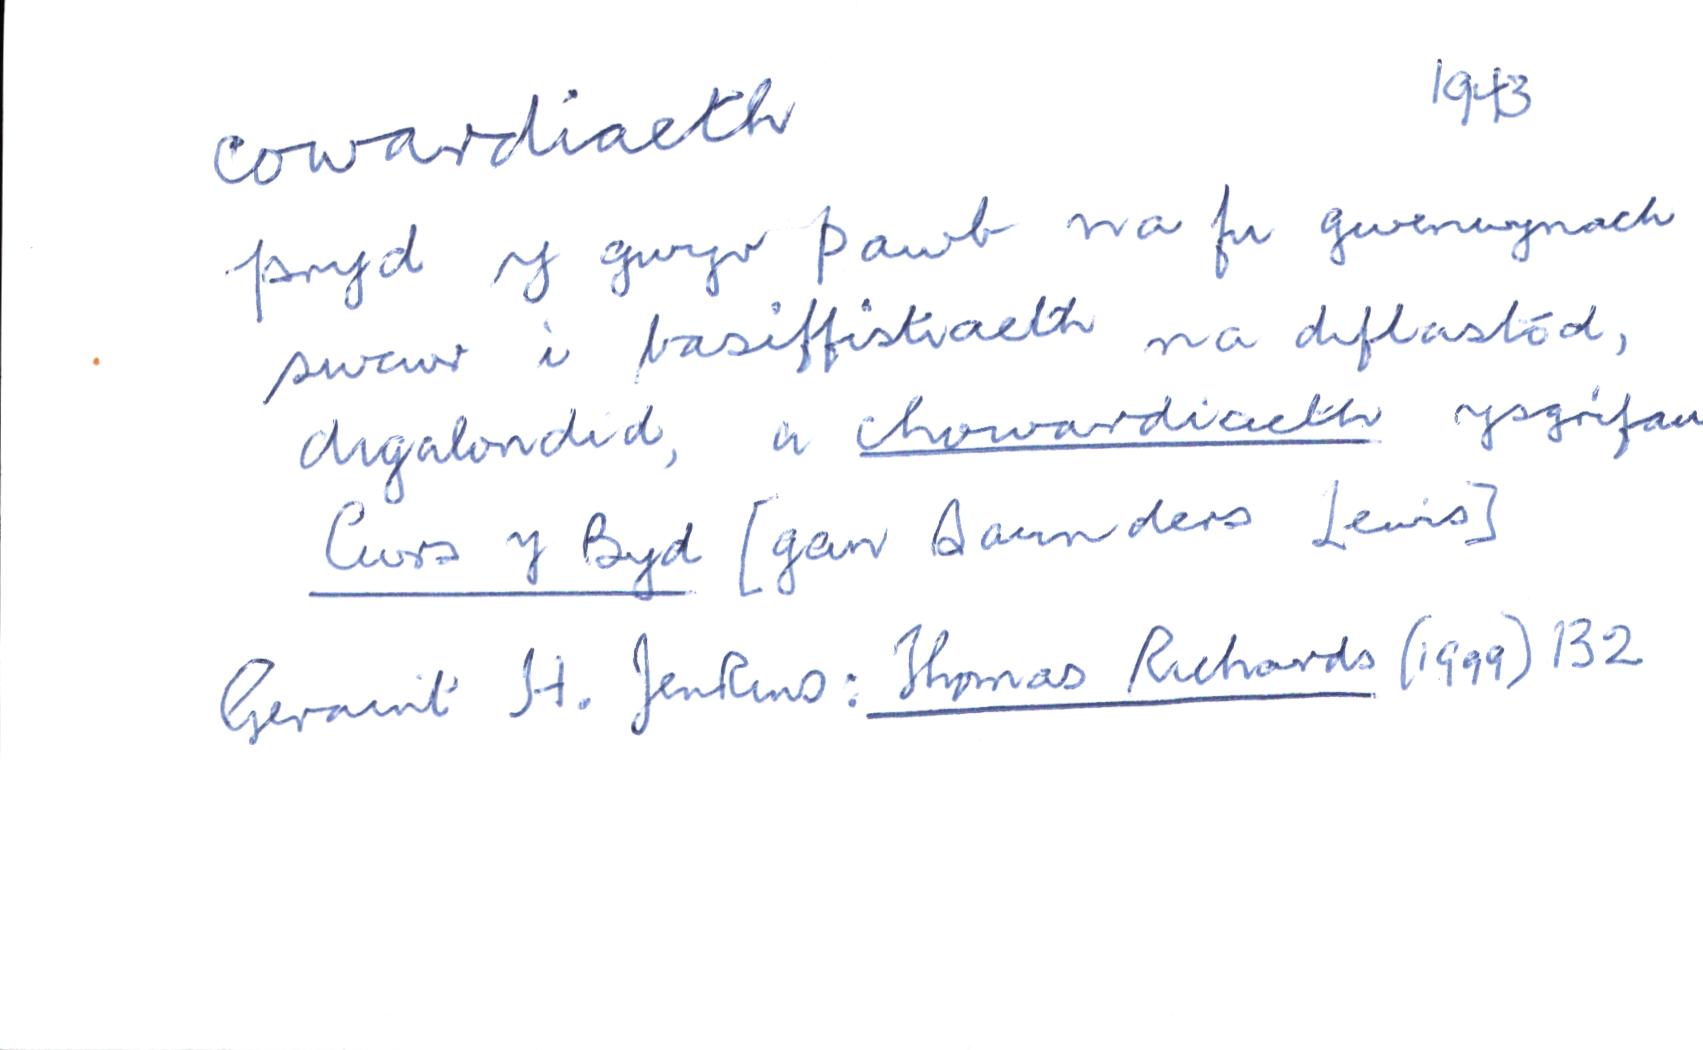 cowardiaeth 1943
pryd y gwyr pawb na fu gwenwynach
swcwr i basiffistiaeth na diflastod,
digalondid, a chowardiaeth ysgrifau
Cwrs y Byd [gan Saunders Lewis]
Geraint H. Jenkins: Thomas Richards (1999) 132